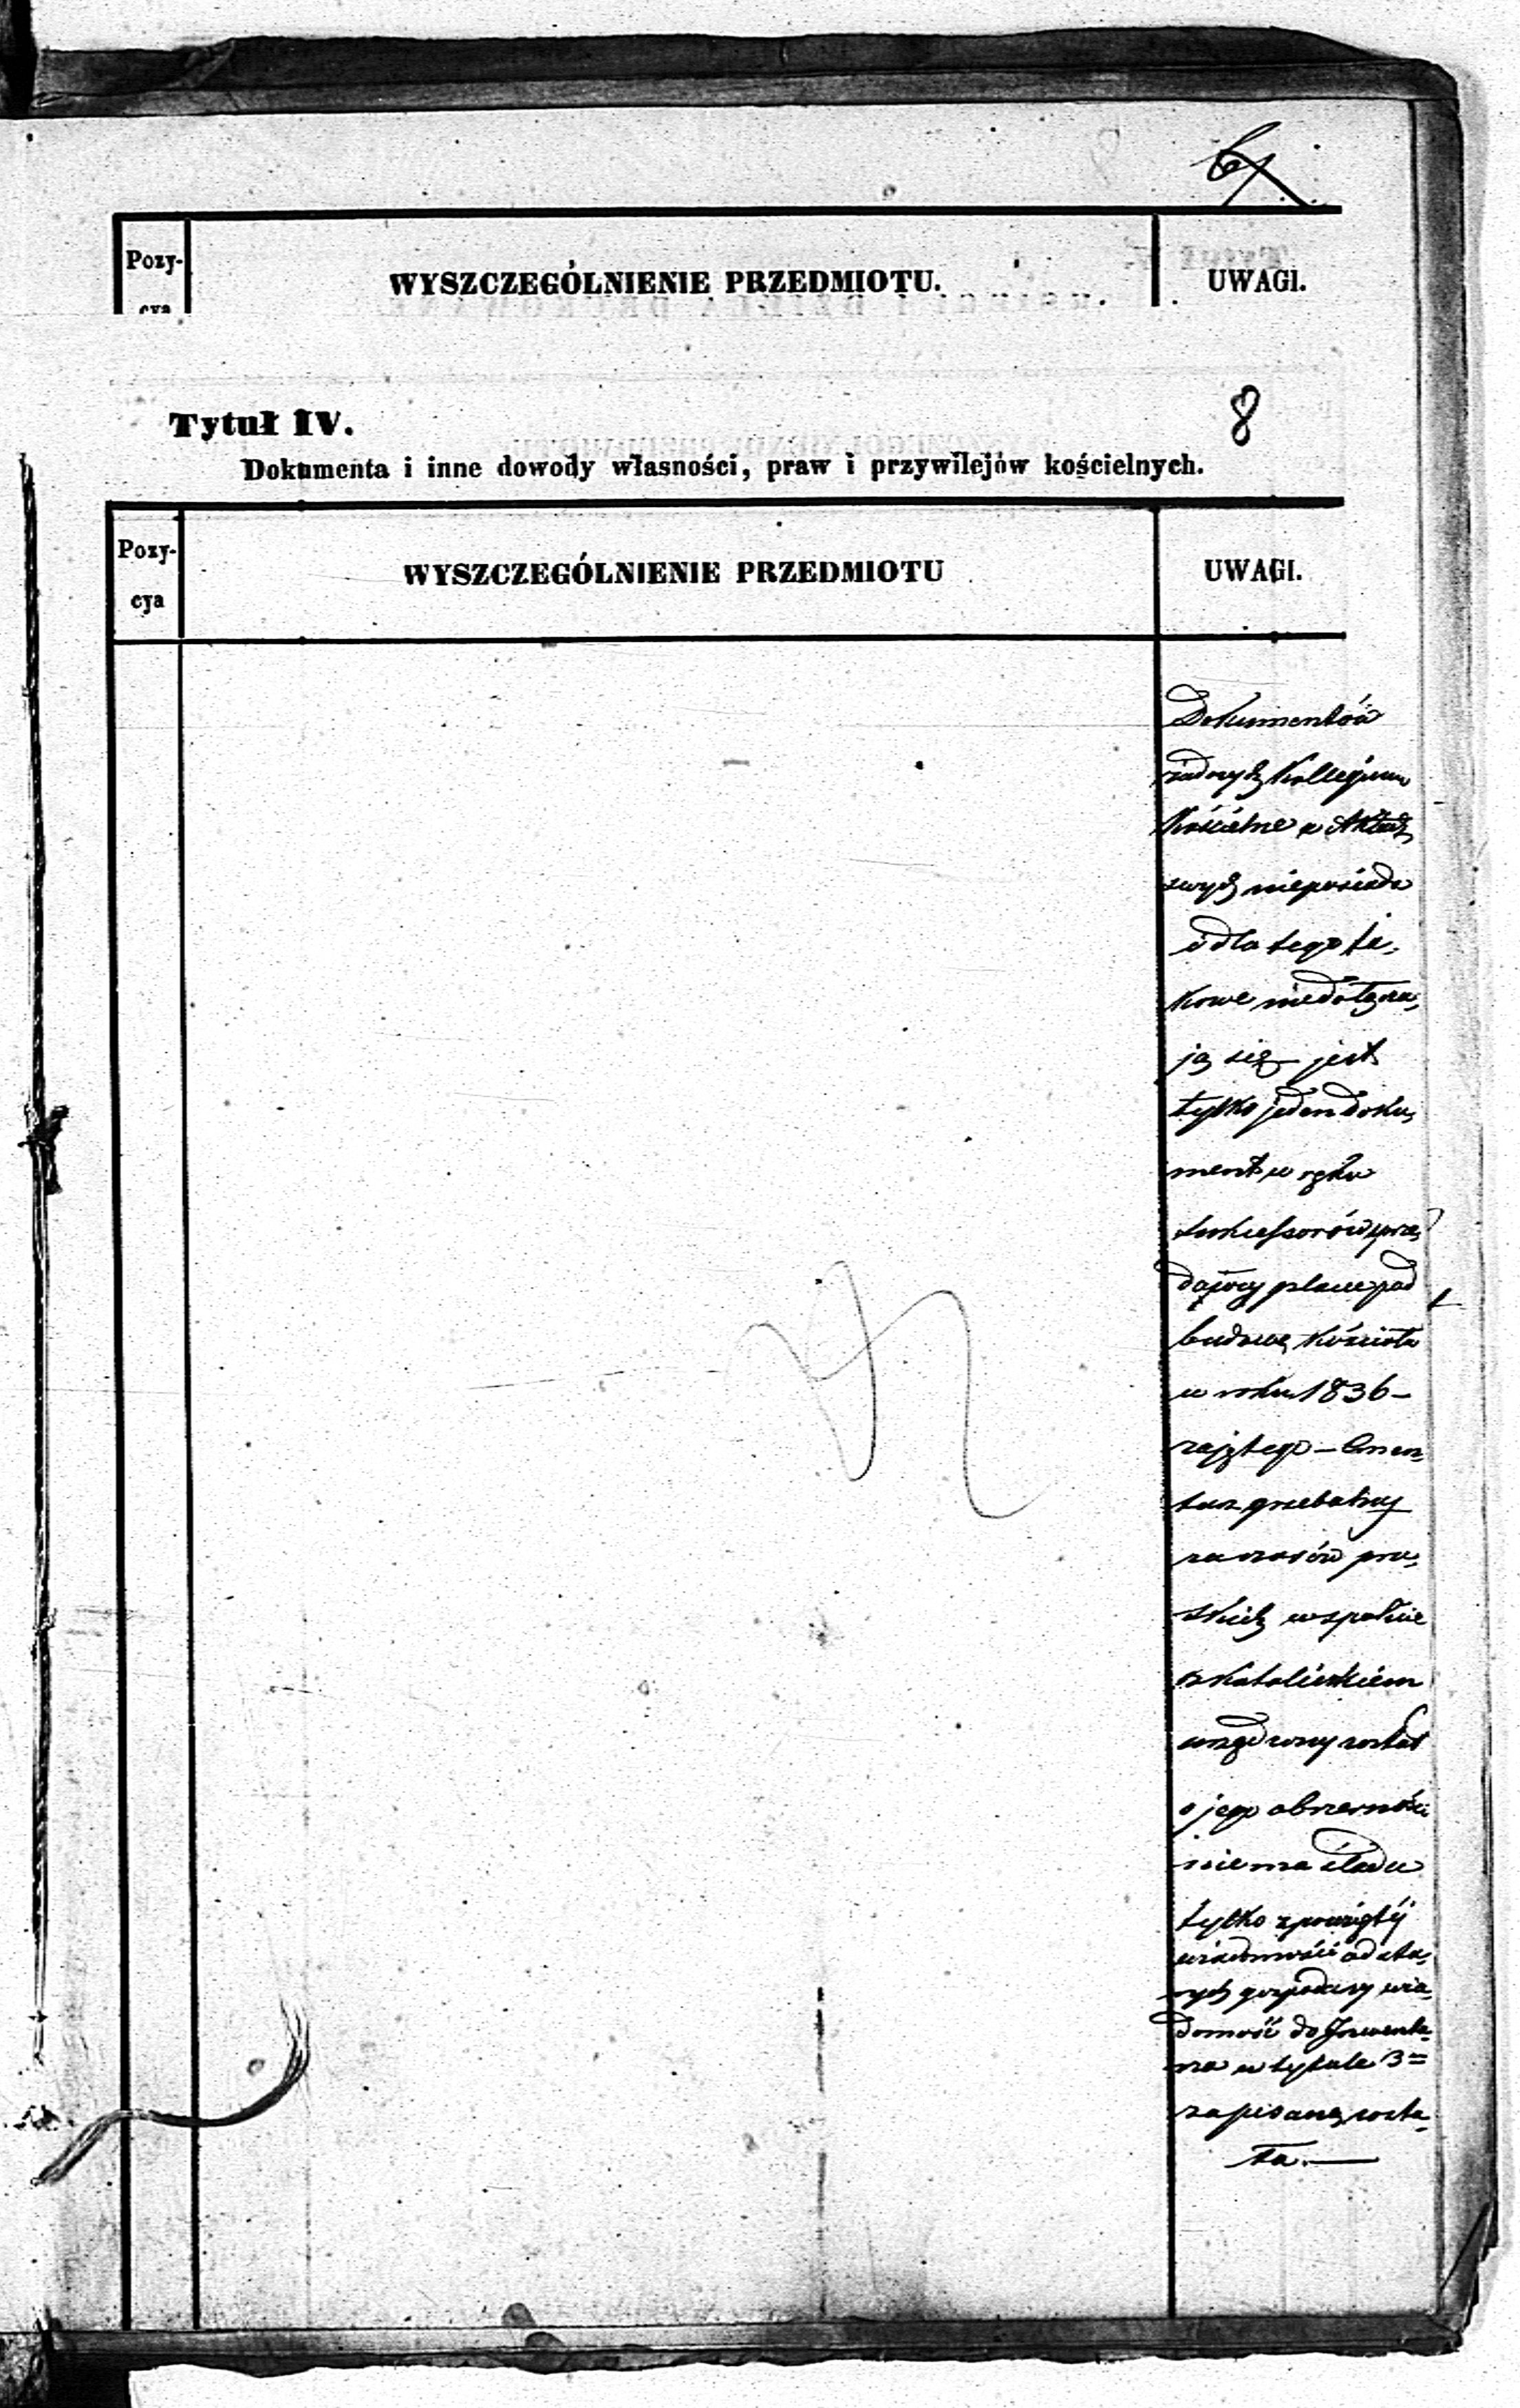 6
Pozy-
cya
WYSZCZEGÓLNIENIE PRZEDMIOTU.
UWAGI.
8
Tytuł IV.
Dokumenta i inne dowody własności, praw i przywilejów kościelnych.
Pozy-
cya
WYSZCZEGÓLNIENIE PRZEDMIOTU
UWAGI.
Dokumentów
żadnych Kollegium
Kościelne w Aktach
swych nieposiada
i dla tego ta-
kowe niedołącza-
ją się – jest
tylko jeden doku-
ment w ręku
sukcessorów
place pod
budowę Kościoła
w roku 1836 –
zajętego – Cmen-
tarz grzebalny
za czasów pru-
skich wspólnie
z katolickiem
urządzony został
o jego obszerności
niema śladu
tylko z powziętéj
wiadomości od sta-
rych gospodarzy wia-
domość do Inwenta-
rza w tytule 3m
zapisaną zosta-
ła. —